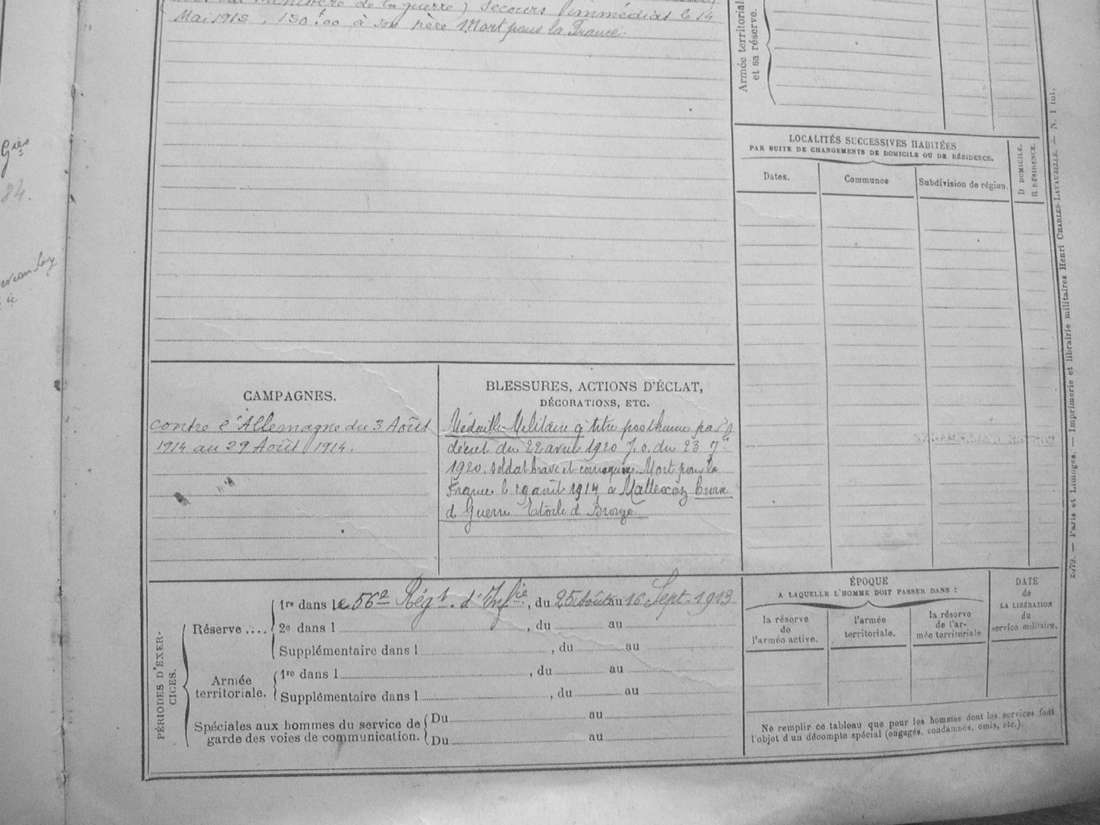 de la guerre) Secours immédiat le 14
Mai 1915, 150f00 à son père Mort pour la France.
Armée territoriale
et sa réserve.
Gies
84.
LOCALITÉS SUCCESSIVES HABITÉES
PAR SUITE DE CHANGEMENTS DE DOMICILE OU DE RÉSIDENCE.
Dates.
Communes
Subdivision de région.
D. DOMICILE.
R. RÉSIDENCE.
CAMPAGNES.
Contre l'Allemagne du 3 Août
1914 au 29 Août 1914.
BLESSURES, ACTIONS D'ÉCLAT,
DÉCORATIONS, ETC.
Médaille Militaire à titre posthume par
décret du 22 avril 1920 J.O. du 23 7re
1920. soldat brave et Mort pour la
France le 29 août 1914 à Croix
d Guerre Etoile d Bronze
PÉRIODES D'EXER-
CICES.
Réserve ....
1re dans le 56e Régt. d'Infie, du 25 Août au 16 Sept. 1913
2e dans l , du au
Supplémentaire dans l , du au
Armée
territoriale.
1re dans l , du au
Supplémentaire dans l , du au
Spéciales aux hommes du service de
garde des voies de communication.
Du au
Du au
ÉPOQUE
A LAQUELLE L'HOMME DOIT PASSER DANS :
la réserve
de
l'armée active.
l'armée
territoriale.
la réserve
de l'ar-
mée territoriale
DATE
de
LA LIBÉRATION
du
service militaire.
Ne remplir ce tableau que pour les hommes dont les services font
l'objet d'un décompte spécial (engagés, condamnés, omis, etc.).
Paris et Limoges. — Imprimerie et librairie militaires Henri CHARLES-LAVAUZELLE. — N. 1 tul.